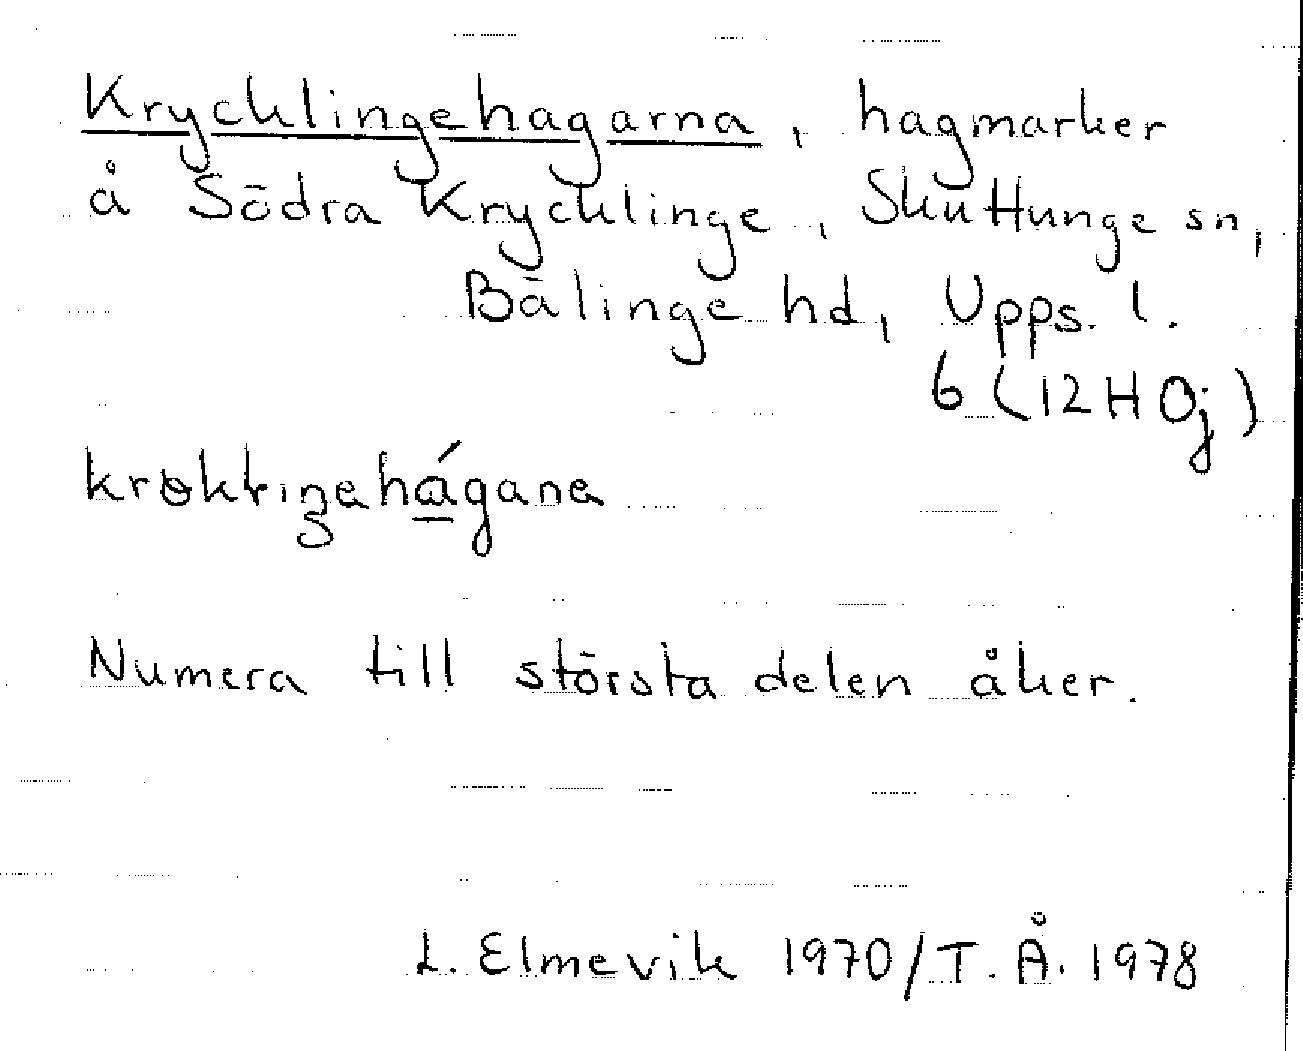 Krycklingehagarna, hagmarker
å Södra Krycklinge, Skuttunge sn,
Bälinge hd, Upps. l.
6 (12H 0j)
Numera till största delen åker.
L. Elmevik 1970/T. Å. 1978